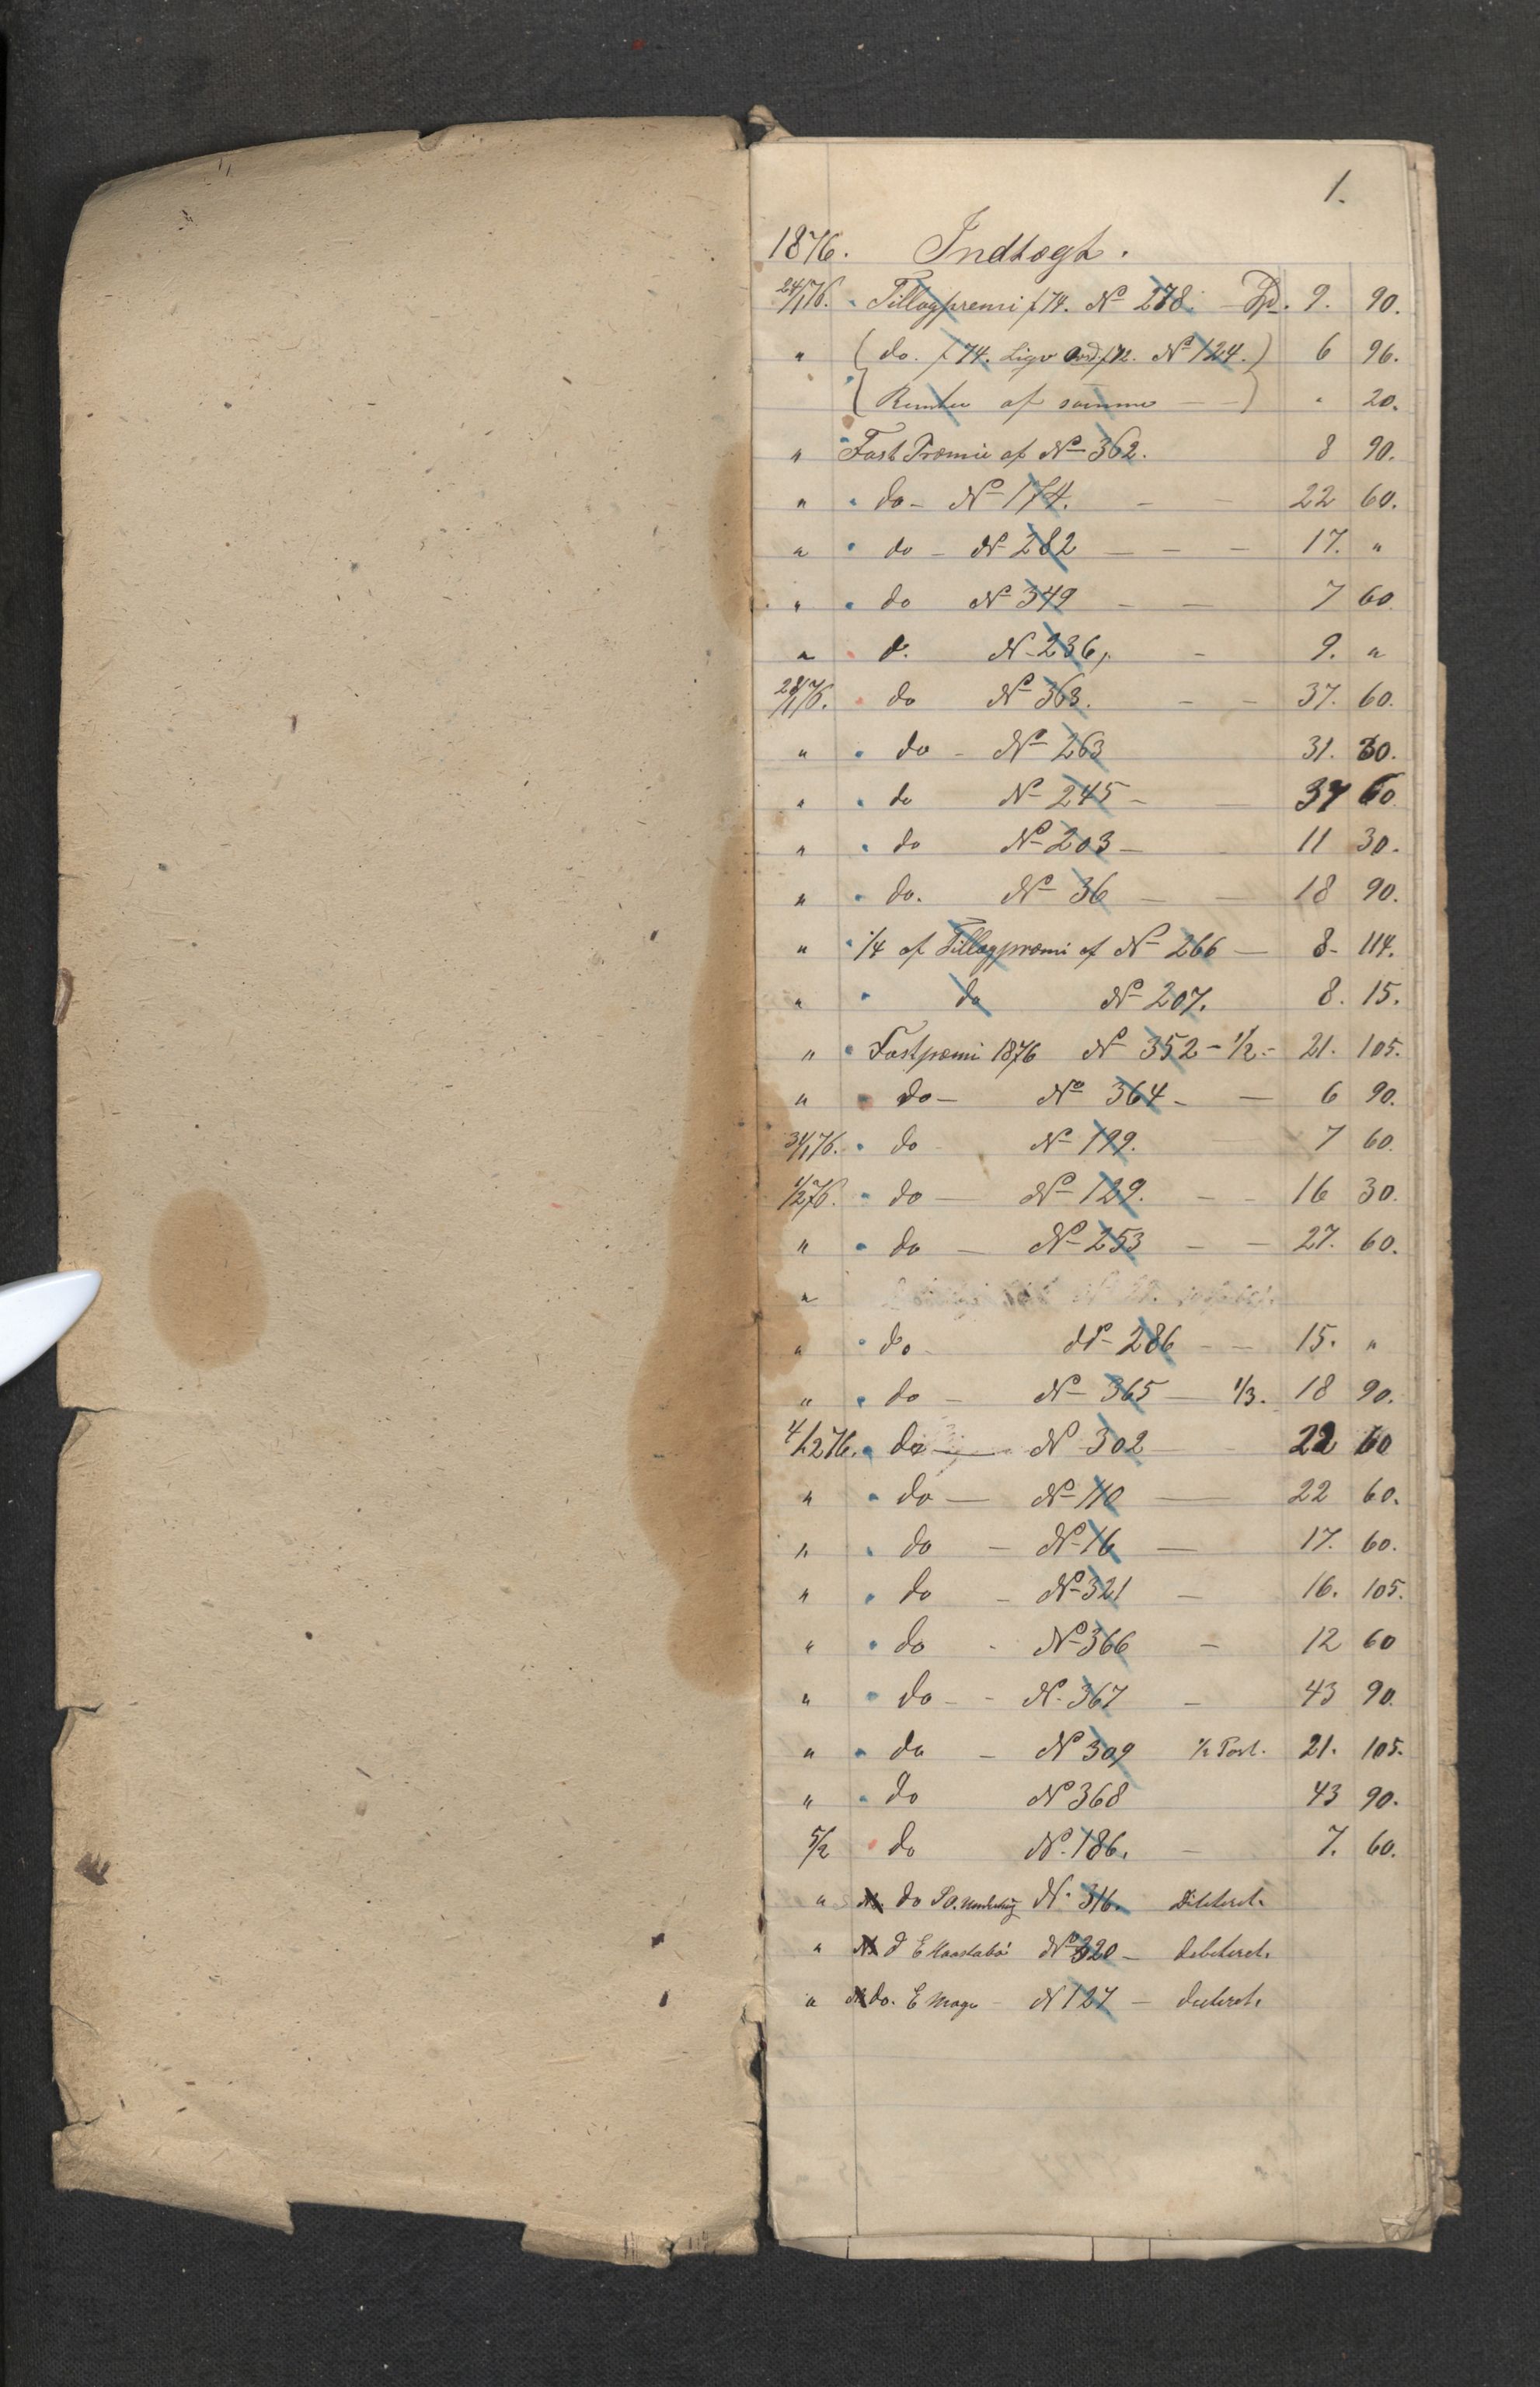 1.
1876. Indtægt.
24/1 76. Tillægpremi f 74. No 278. Spd. 9. 90.
" ( do. f 74. Ligv f 72. No 124. ) 6 96.
( Renter af samme — ) " 20.
" Fast Præmie af No 362. 8 90.
" do - No 174. - - 22 60.
" do - No 282 - - - 17. "
" do No 349 - - 7 60
" d. No 236, - 9. "
28/1 76. do No 363. - - 37. 60.
" do - No 263 31. 30.
" do No 245 - - 37 60
" do No 203 - 11 30.
" do. No 36 - - 18 90.
" 1/4 af Tillægpræmi af No 266 — 8 - 114.
" do No 207. 8. 15.
" Fastpræmi 1876 No 352 - 1/2 - 21. 105.
" do - No 364 - — 6 90.
31/1 76. do No 199. 7 60.
1/2 76. do — No 129. - - 16 30.
" do — No 253 - - 27. 60.
"
" do - No 286 - - 15. "
" do - No 365 — 1/3. 18 90.
4/2 76. do — No 302 22 60
" do — No 110 — 22 60.
" do - No 16 — 17. 60.
" do - No 321 - 16. 105.
" do - No 366 - 12 60
" do - - N. 367 - 43 90.
" do - No 309 21. 105.
" do No 368 43 90.
5/2 do No. 186. - 7. 60.
" do N. 316.
" d No 320 - debiteret.
" do. E No 127 -